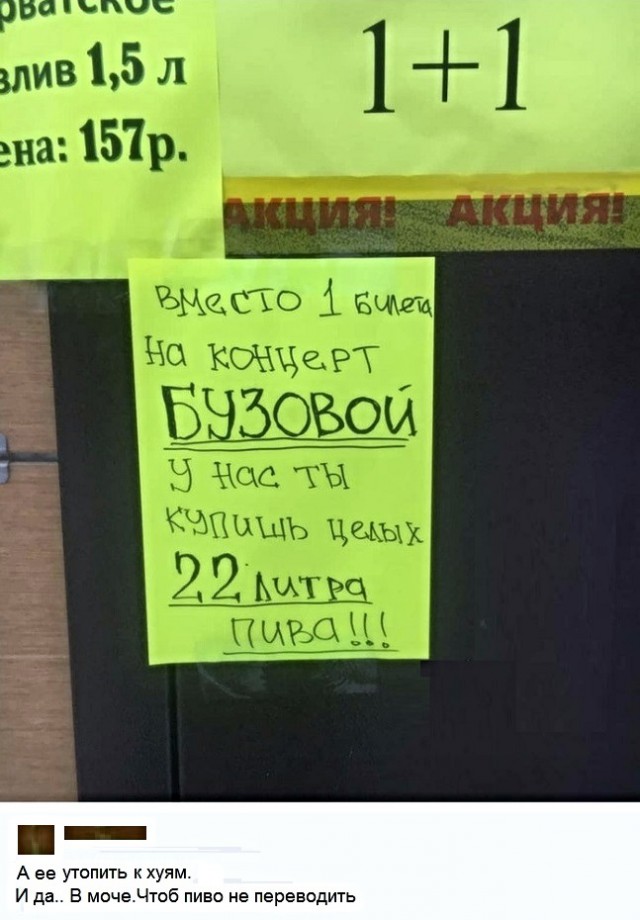 рватское
злив 1,5 л
ена: 157р.
1+1
АКЦИЯ! АКЦИЯ!
Вместо 1 билета
на концерт
БУЗОВОЙ
у нас ты
купишь целых
22 литра
пива!!!
А ее утопить к хуям.
И да.. В моче.Чтоб пиво не переводить